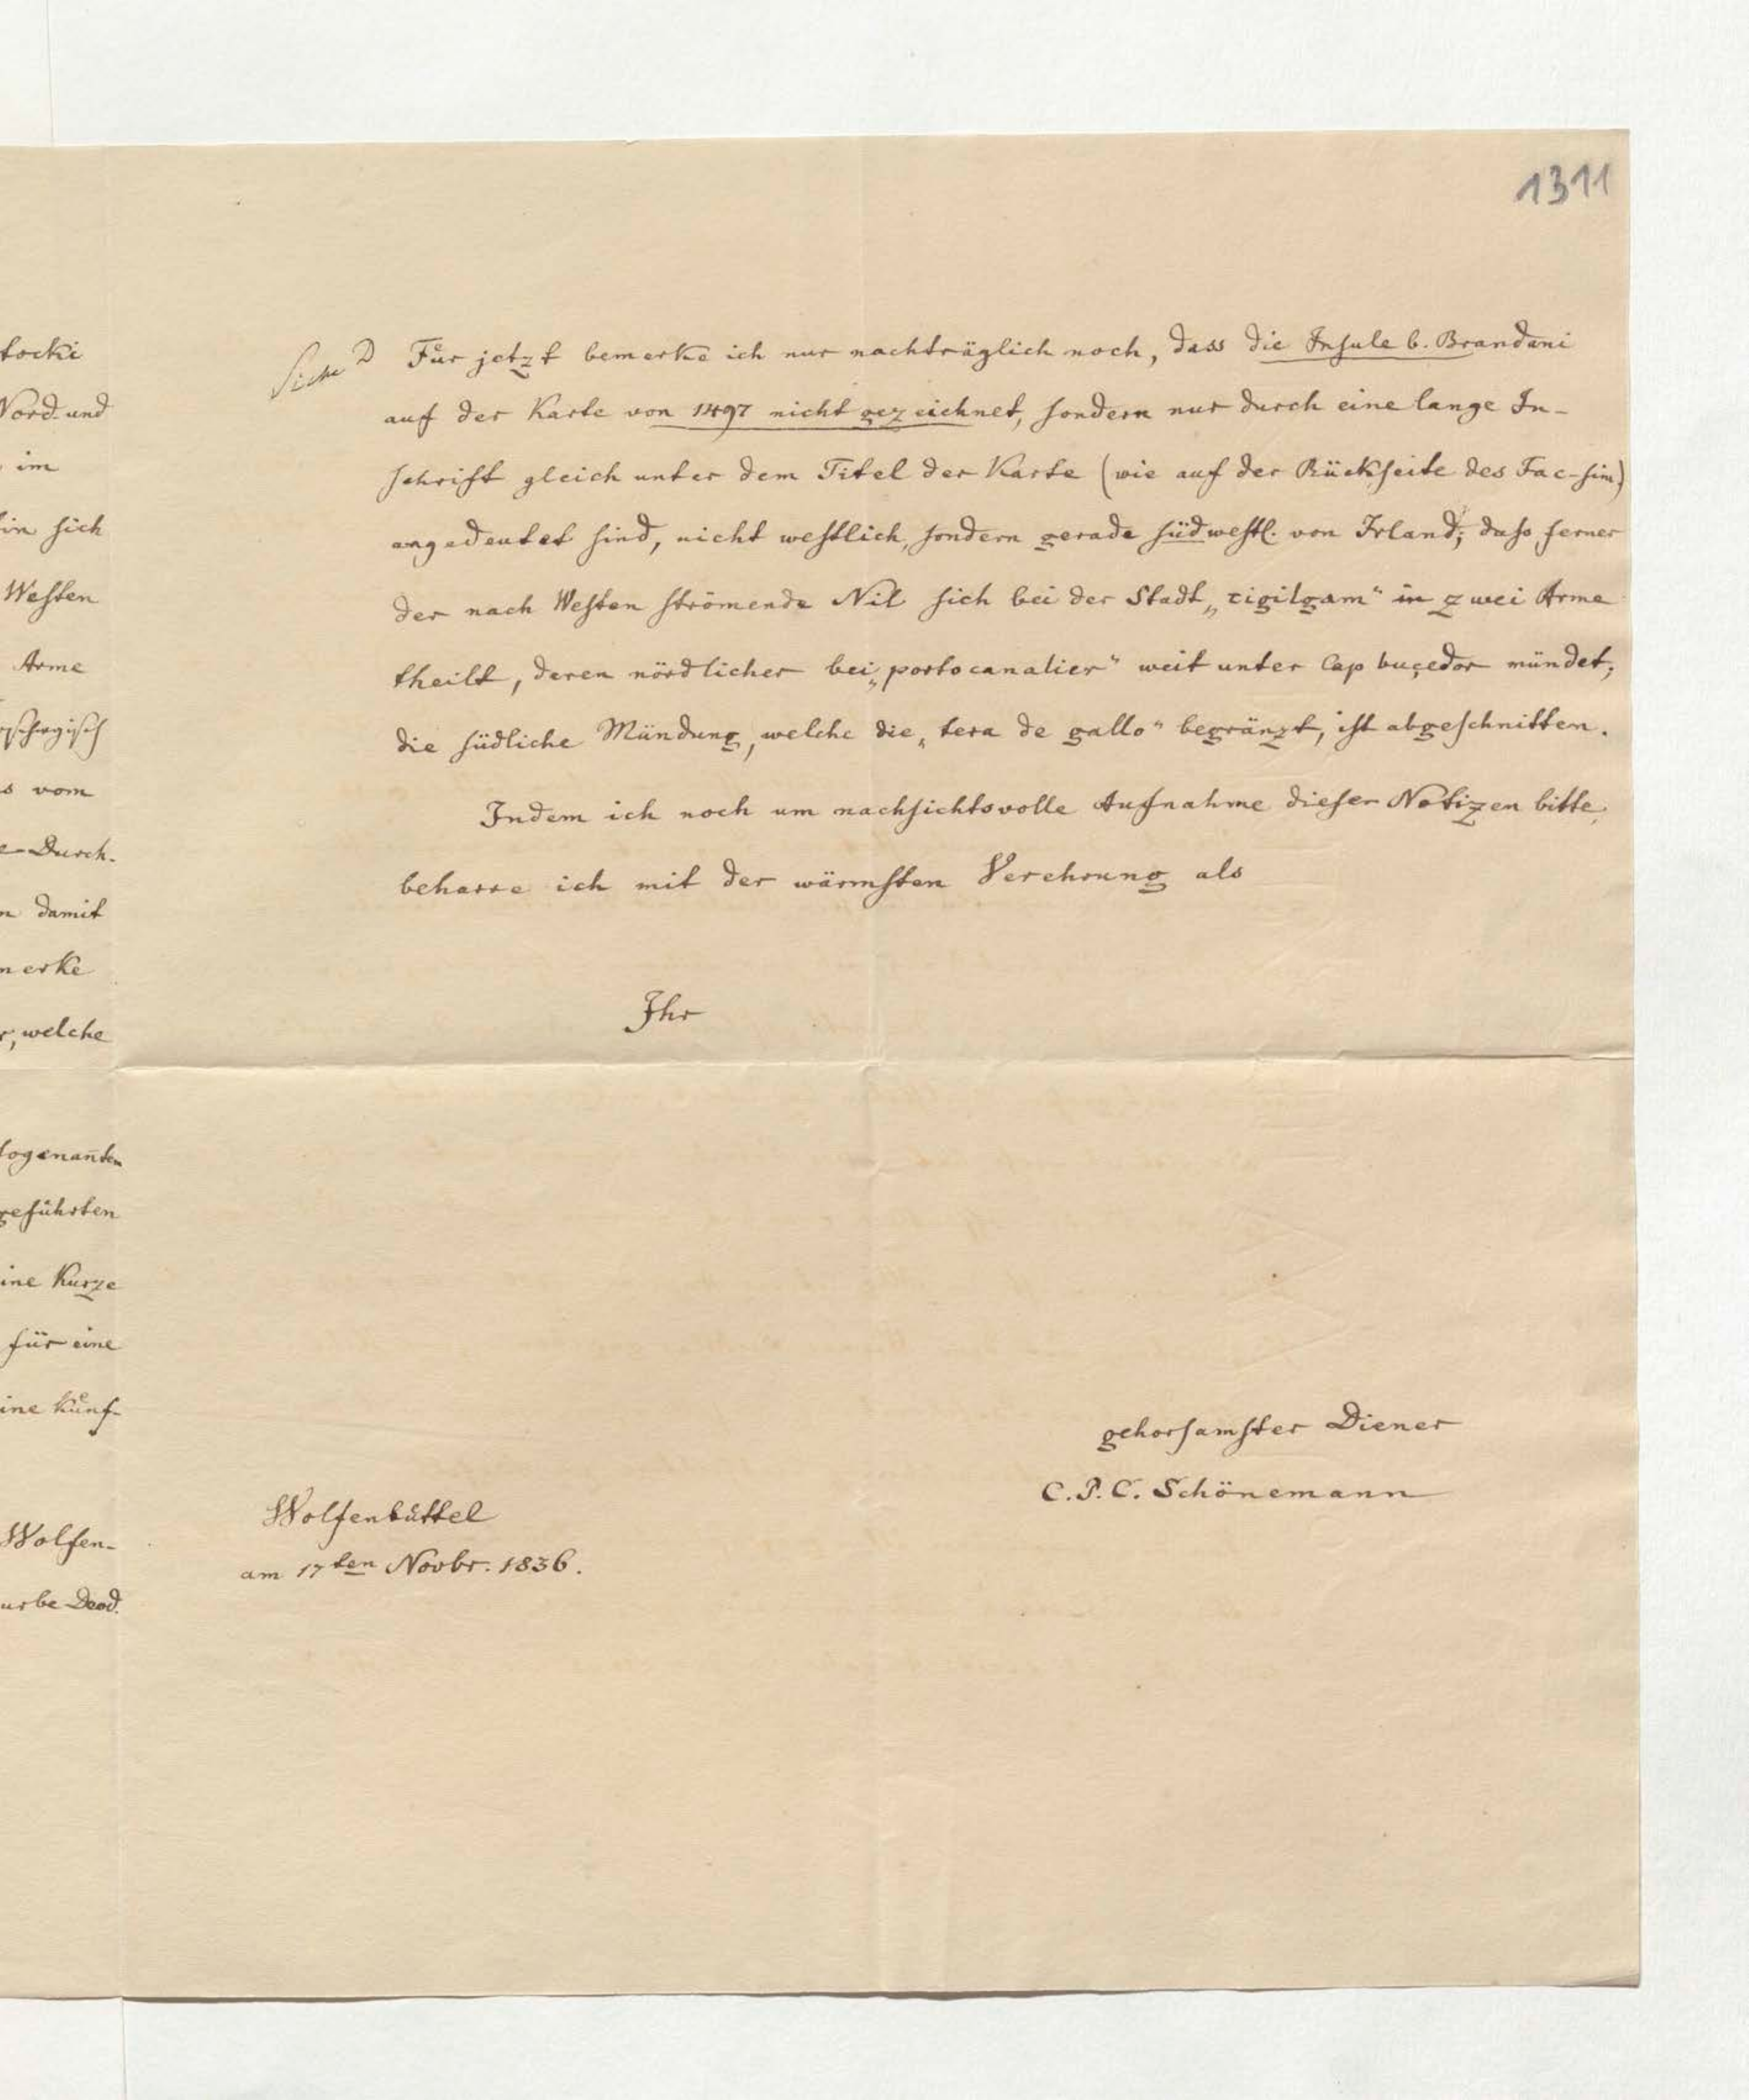 1311
tocki
Nord- und
im
in sich
Westen
Arme
s vom
Durch-
damit
merke
r, welche
sogenanten
geführten
ine Kurze
für eine
ine Künf-
Wolfen-
urbe Deod.
Siehe D Für jetzt bemerke ich nur nachträglich noch, dass die Insule b. Brandani
auf der Karte von 1497 nicht gezeichnet, sondern nur durch eine lange In-
schrift gleich unter dem Titel der Karte (wie auf der Rückseite des Fac-sim)
angedeutet sind, nicht westlich, sondern gerade südwestl. von Irland; daß ferner
der nach Westen strömende Nil sich bei der Stadt „tigilgam“ in zwei Arme
theilt, deren nördlicher bei „portocanalier“ weit unter Cap buçedor mündet;
die südliche Mündung, welche die „tera de gallo“ begränzt, ist abgeschnitten.
Indem ich noch um nachsichtsvolle Aufnahme dieser Notizen bitte,
beharre ich mit der wärmsten Verehrung als
Ihr
gehorsamster Diener
C. P. C. Schönemann
Wolfenbüttel
am 17ten Novbr. 1836.